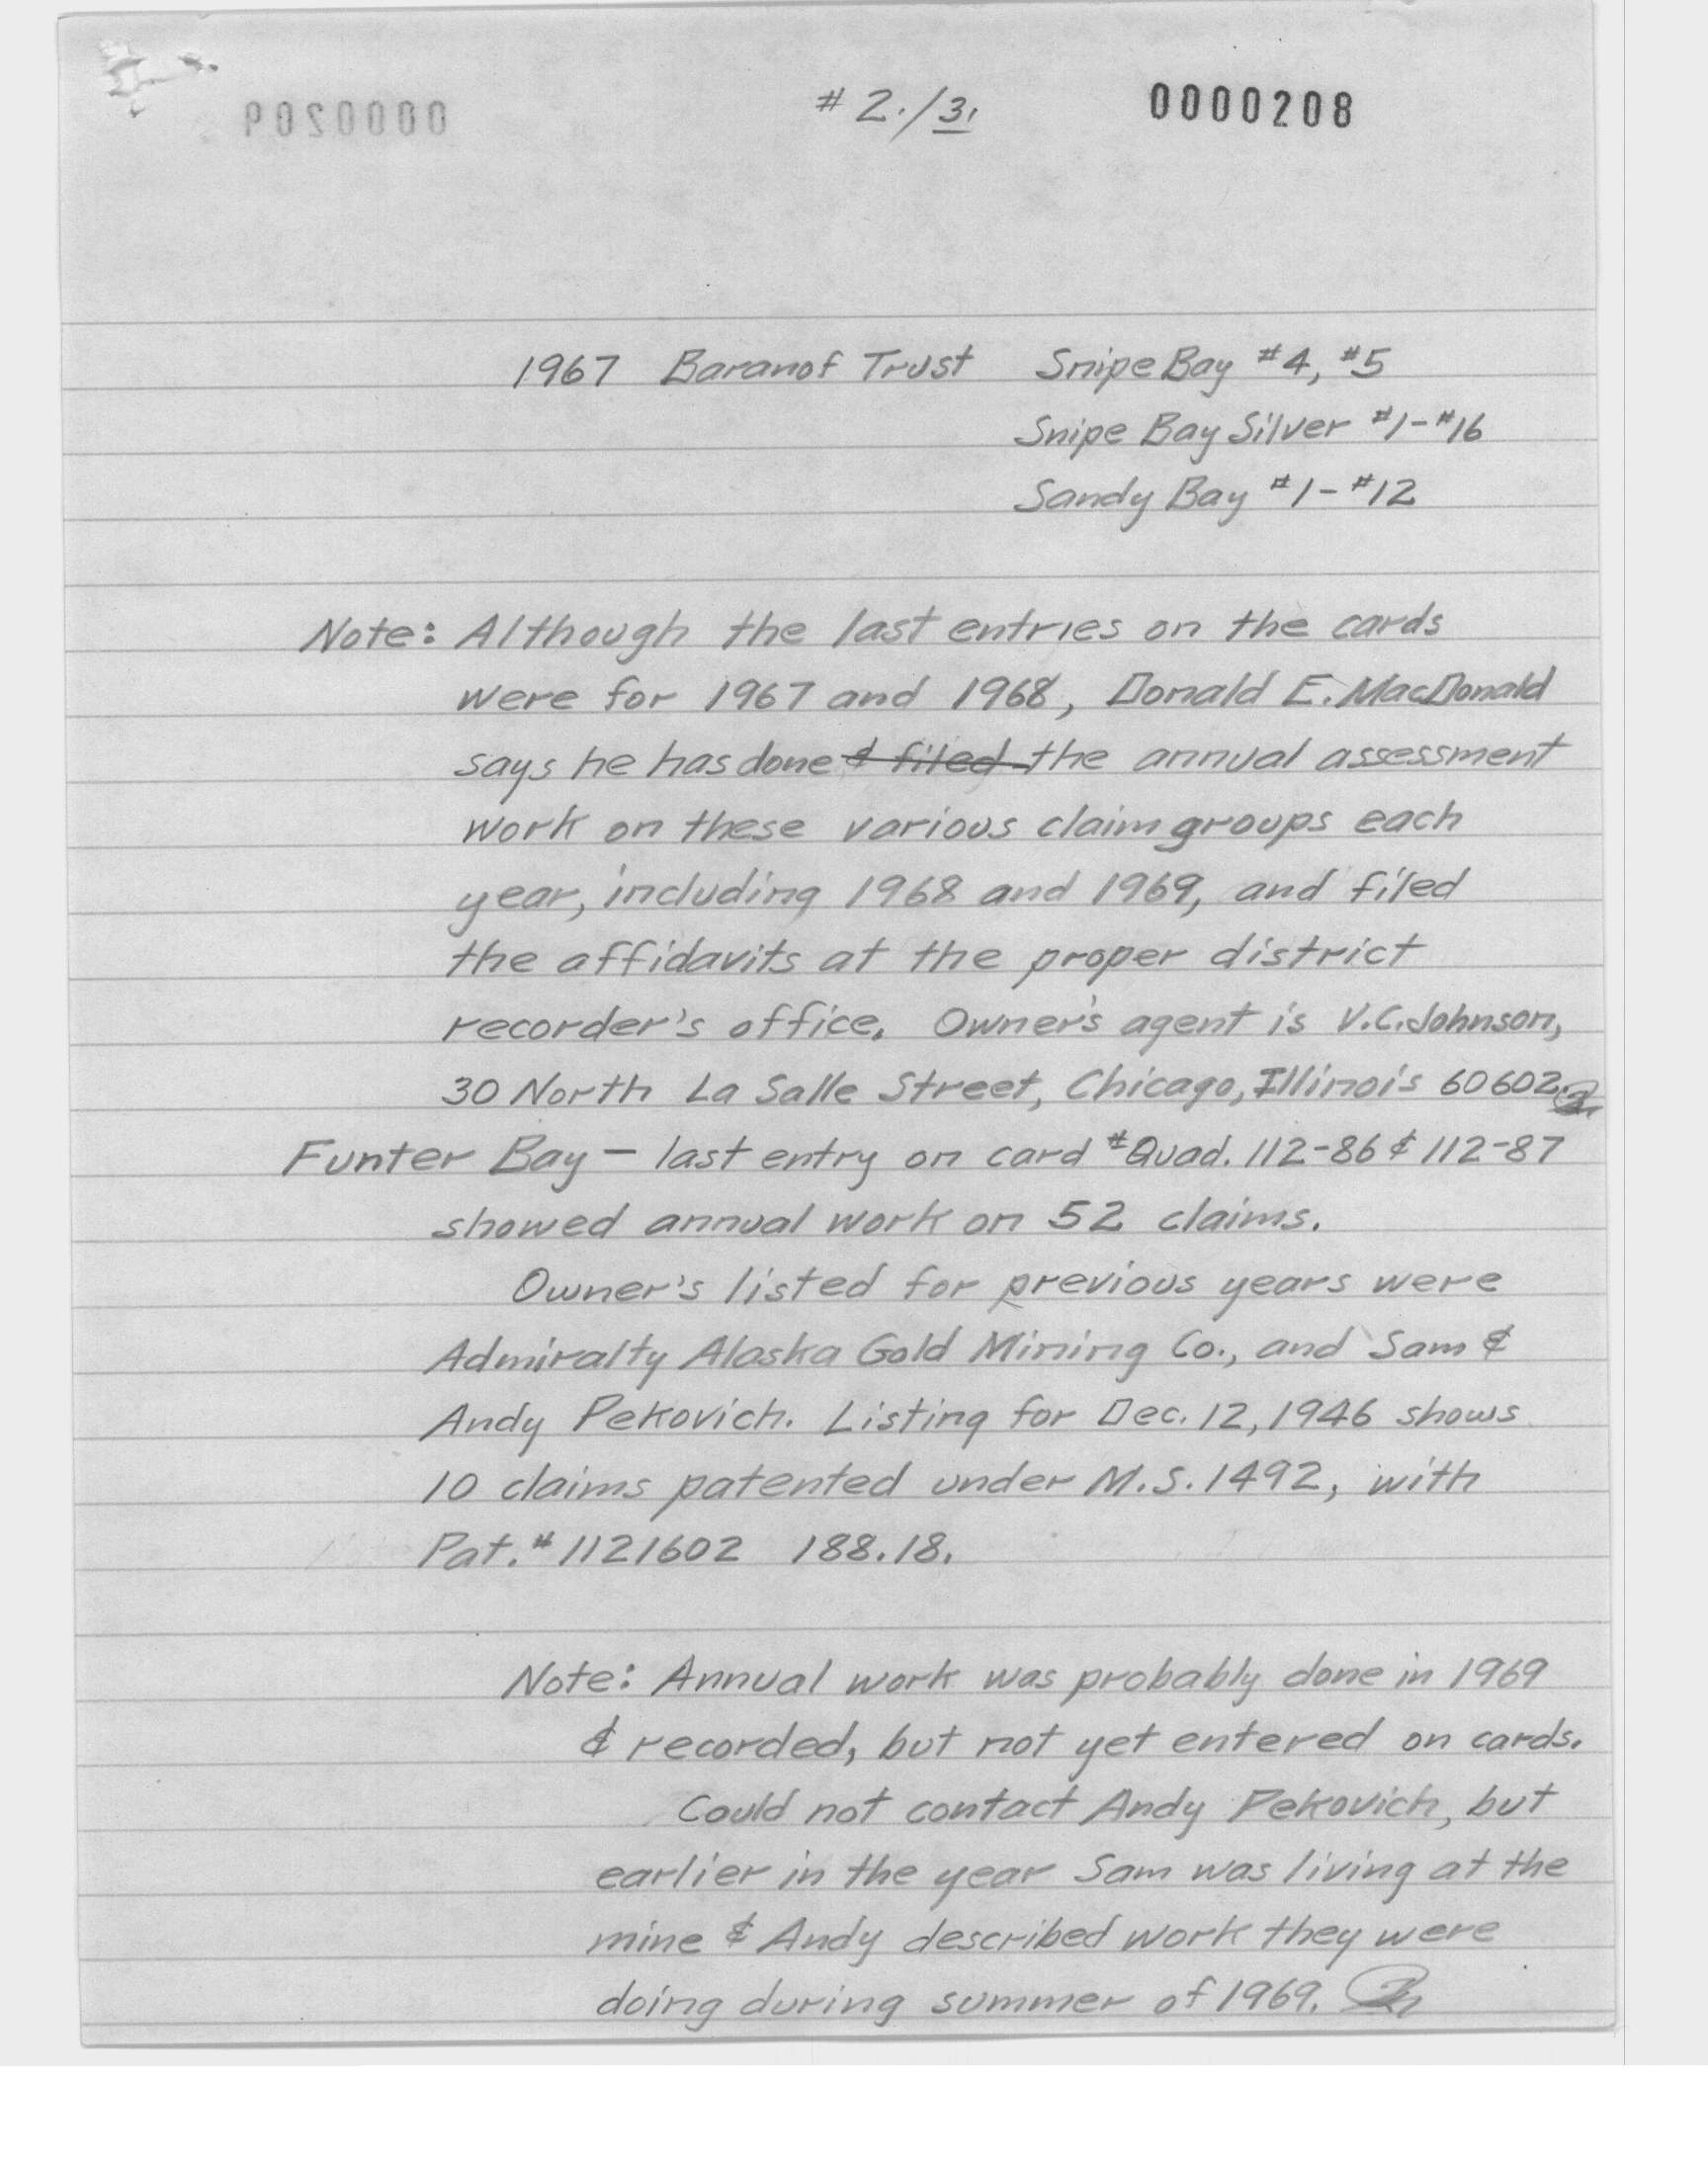 # 2./3.
0000208
0000209
1967 Baranof Trust Snipe Bay #4, #5
Snipe Bay Silver #1-#16
Sandy Bay #1-#12
Note: Although the last entries on the cards
were for 1967 and 1968, Donald E. MacDonald
says he has done & filed the annual assessment
work on these various claim groups each
year, including 1968 and 1969, and filed
the affidavits at the proper district
recorder's office. Owner's agent is V.C. Johnson,
30 North La Salle Street, Chicago, Illinois 60602.
Funter Bay - last entry on card #Quad. 112-86 & 112-87
showed annual work on 52 claims.
Owner's listed for previous years were
Admiralty Alaska Gold Mining Co., and Sam &
Andy Pekovich. Listing for Dec. 12, 1946 shows
10 claims patented under M.S. 1492, with
Pat. # 1121602 188.18.
Note: Annual work was probably done in 1969
& recorded, but not yet entered on cards.
Could not contact Andy Pekovich, but
earlier in the year Sam was living at the
mine & Andy described work they were
doing during summer of 1969.